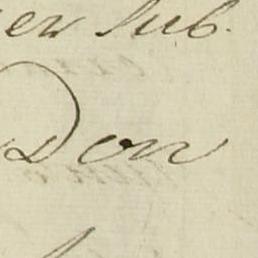 er Sub.
Don